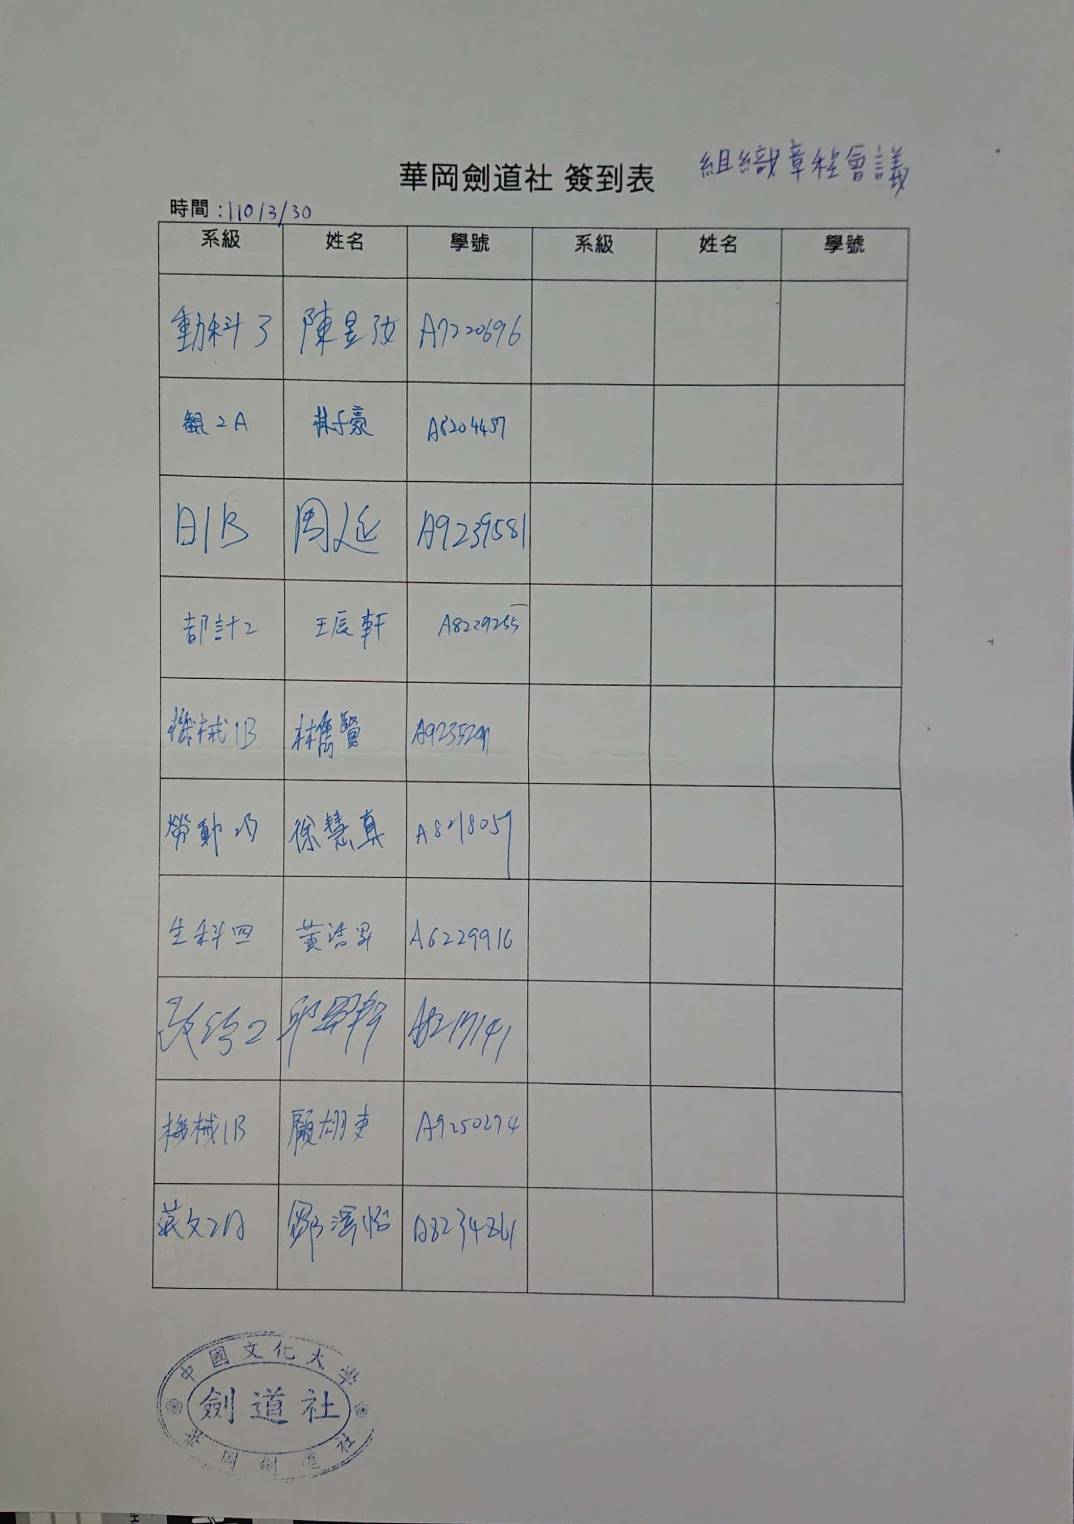 華岡劍道社 簽到表 組織章程會議
時間:110/3/30
系級 姓名 學號 系級 姓名 學號
動科3 陳昱汝 A7220696
觀2A 林子豪 A8204487
日1B 周延 A9239581
都計2 王辰軒 A8229255
機械1B 林雋賢
勞動2B 徐慧真 A8218057
生科四 黃浩昇 A6229916
政治2 邱 A8217141
機械1B 顧翃 A9250274
英文2A 鄒 怡 A8234861
中國文化大學
劍道社
華岡劍道社